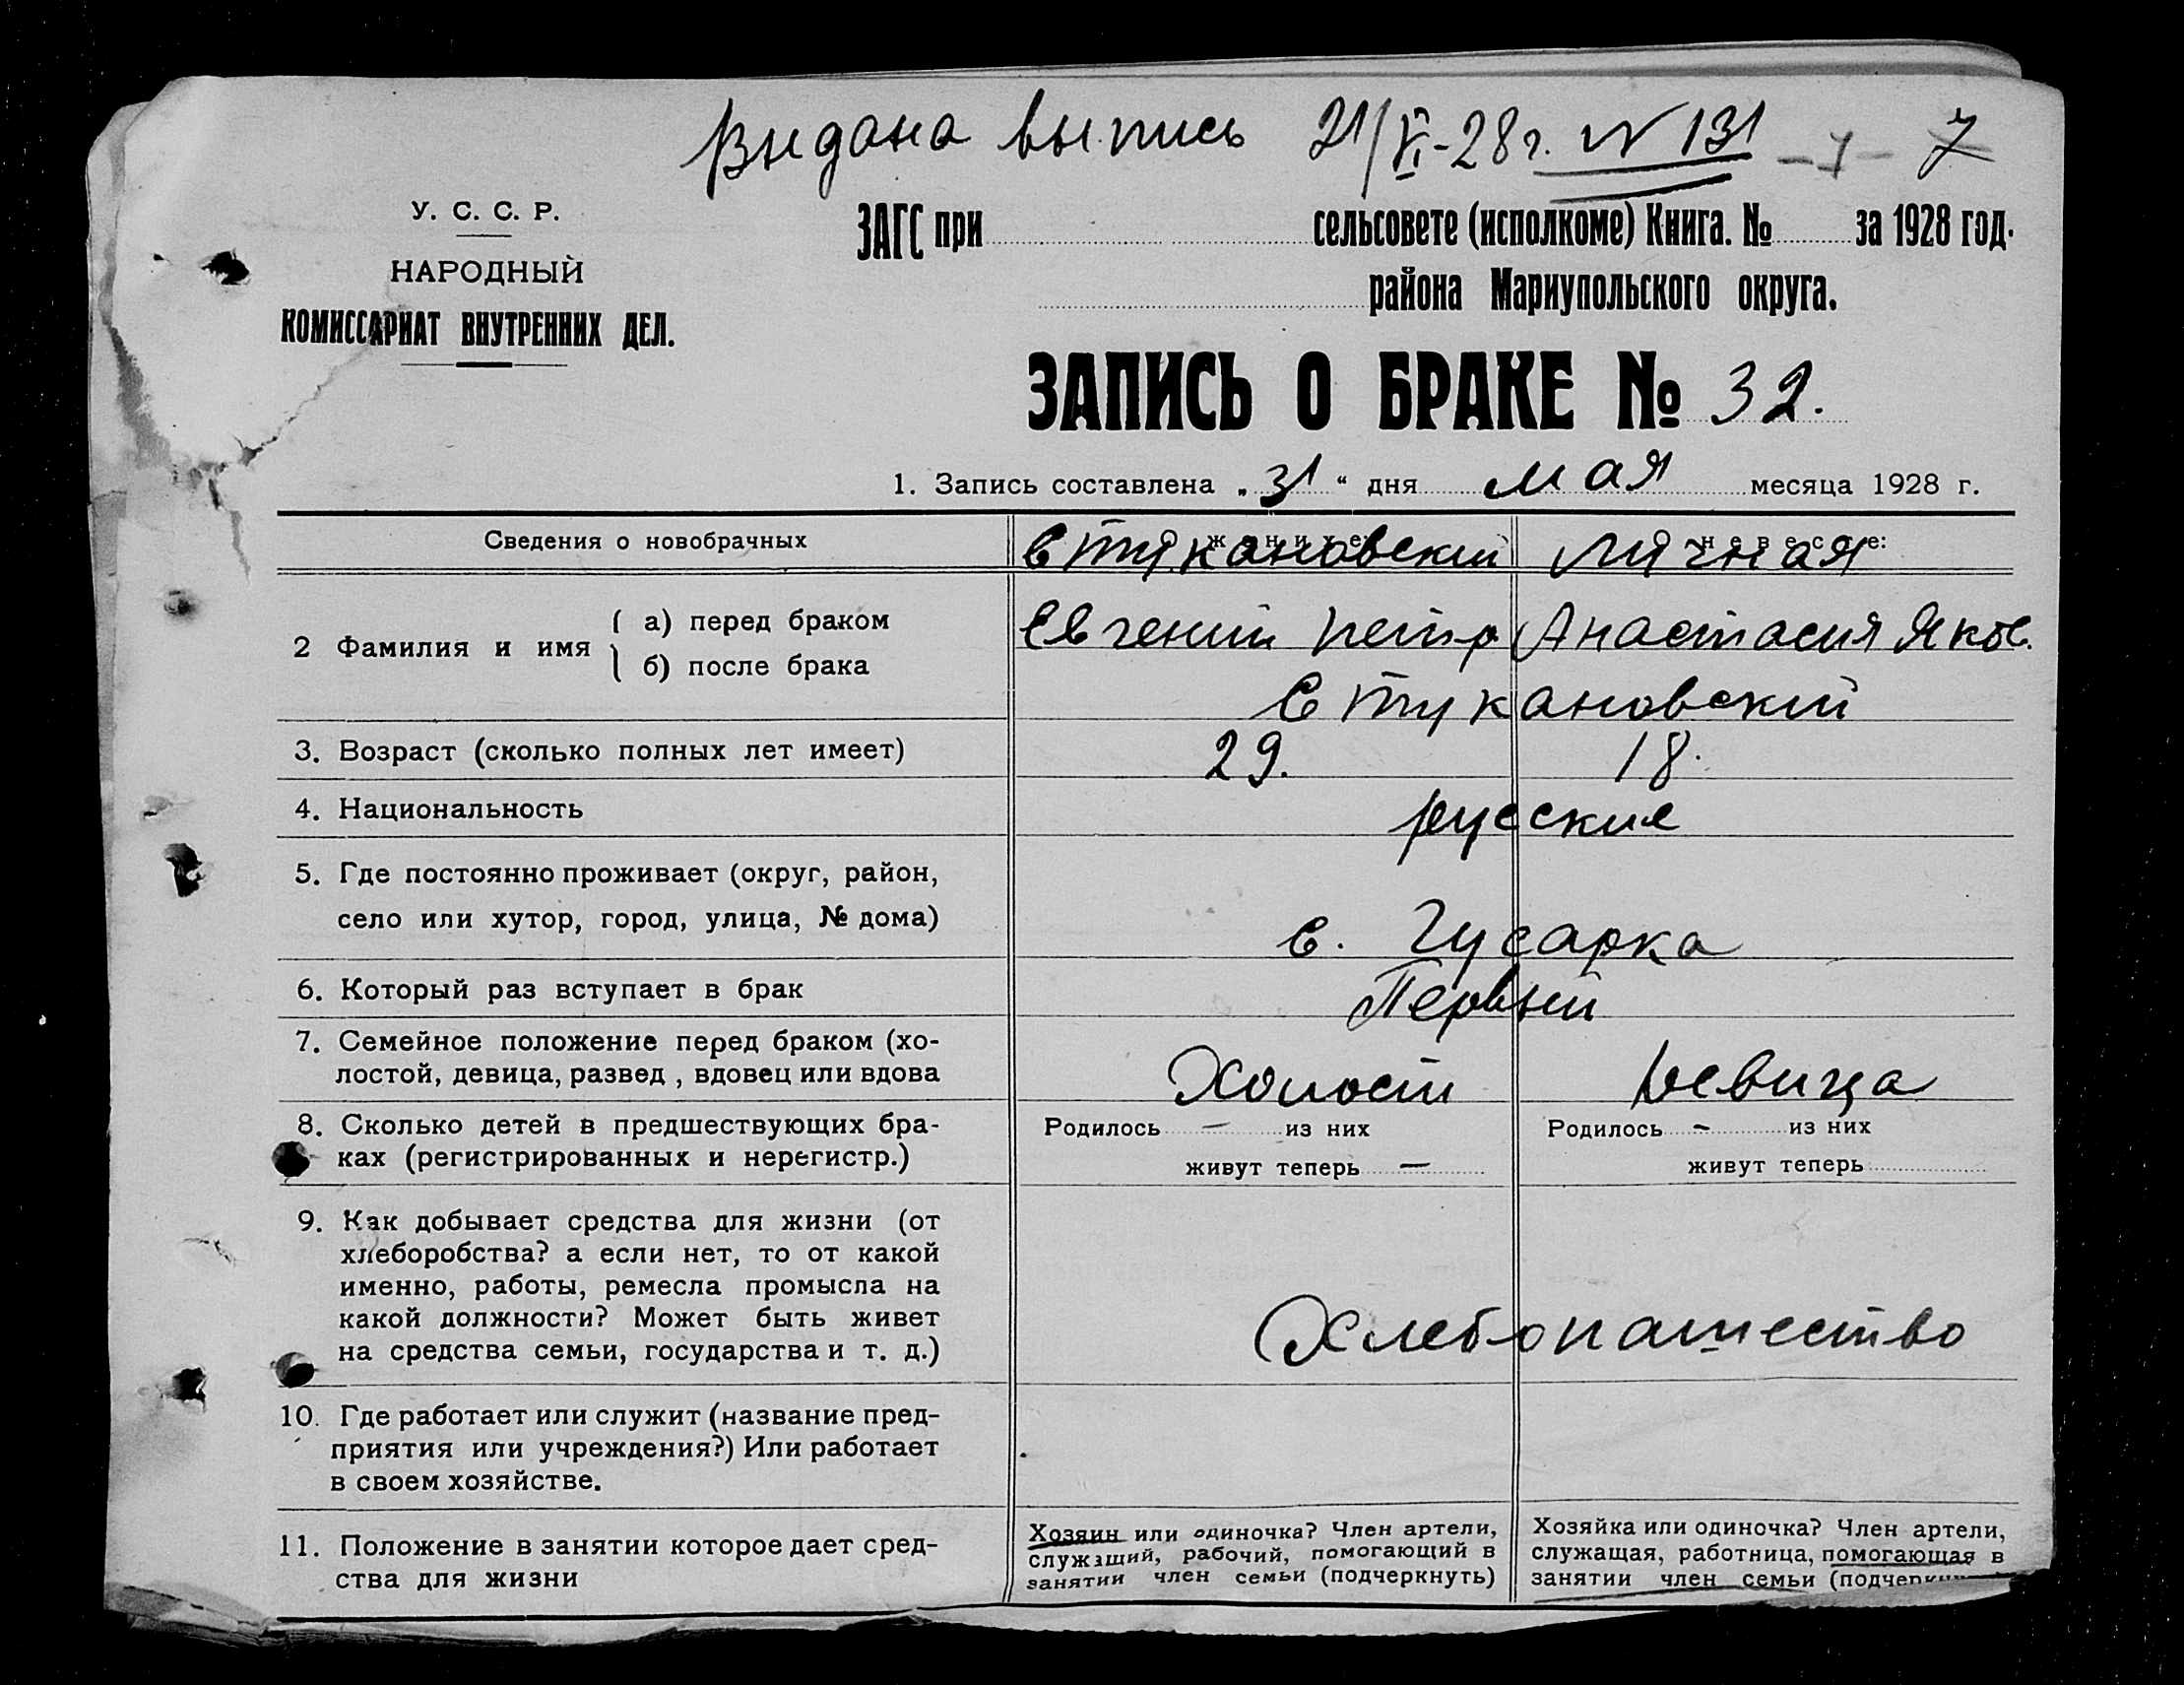 Выдана выпись 21/VI-28г. N 131 7
У. С. С. Р.
НАРОДНЫЙ
КОМИССАРИАТ ВНУТРЕННИХ ДЕЛ.
ЗАГС при сельсовете (исполкоме) Книга. № за 1928 год.
района Мариупольского округа.
ЗАПИСЬ О БРАКЕ № 32.
1. Запись составлена „ 31 “ дня мая месяца 1928 г.
Сведения о новобрачных
о женихе: о невесте:
Стукановский
2 Фамилия и имя
а) перед браком
б) после брака
Евгений Петр Анастасия Яков.
Стукановский
3. Возраст (сколько полных лет имеет) 29. 18.
4. Национальность русские
5. Где постоянно проживает (округ, район,
село или хутор, город, улица, № дома) с. Гусарка
6. Который раз вступает в брак Первый
7. Семейное положение перед браком (хо-
лостой, девица, развед , вдовец или вдова Холост Девица
8. Сколько детей в предшествующих бра-
ках (регистрированных и нерегистр.)
Родилось — из них
живут теперь —
Родилось — из них
живут теперь
9. Как добывает средства для жизни (от
хлеборобства? а если нет, то от какой
именно, работы, ремесла промысла на
какой должности? Может быть живет
на средства семьи, государства и т. д.)
Хлебопашество
10. Где работает или служит (название пред-
приятия или учреждения?) Или работает
в своем хозяйстве.
11. Положение в занятии которое дает сред-
ства для жизни
Хозяин или одиночка? Член артели,
служащий, рабочий, помогающий в
занятии член семьи (подчеркнуть)
Хозяйка или одиночка? Член артели,
служащая, работница, помогающая в
занятии член семьи